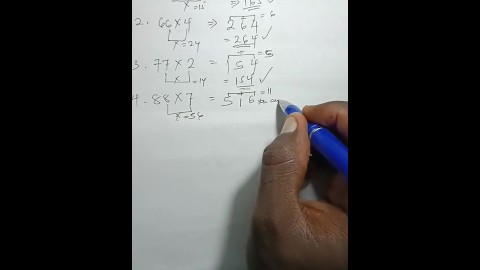 x=15 163
=6
2. 66×4 ⇒ 264
x=24 =264 ✓
=5
3. 77×2 = 154
x=14 154 ✓
=11
4. 88×7 = 516
x=56